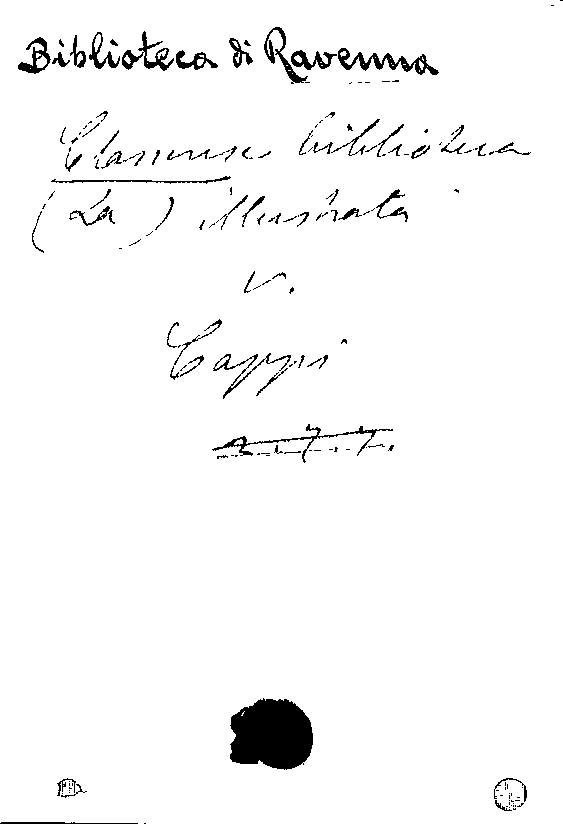 Biblioteca di Ravenna
Classense biblioteca
(La) illustrata
v.
Cappi